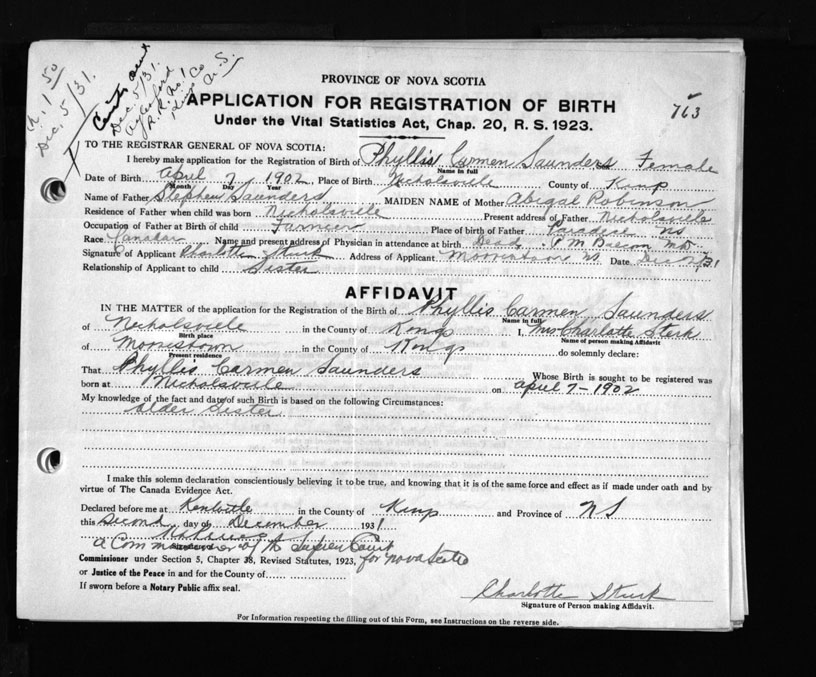 $1.50
Dec. 5/31.
Dec. 5/31.
Aylesford
R.R. No. 1
Kings Co
N.S.
763
PROVINCE OF NOVA SCOTIA
APPLICATION FOR REGISTRATION OF BIRTH
Under the Vital Statistics Act, Chap. 20, R. S. 1923.
TO THE REGISTRAR GENERAL OF NOVA SCOTIA:
I hereby make application for the Registration of Birth of Phyllis Carmen Saunders Female
Name in full
Date of Birth April 7 1902, Place of Birth Nicholsville County of Kings
Month Day Year
Name of Father Stephen Saunders MAIDEN NAME of Mother Abigal Robinson
Residence of Father when child was born Nicholsville Present address of Father Nicholsville
Occupation of Father at Birth of child Farmer Place of birth of Father Paradise NS
Race Name and present address of Physician in attendance at birth Dead M D
Signature of Applicant Charlotte Address of Applicant Morristown NS Date Dec 2/31
Relationship of Applicant to child Sister
AFFIDAVIT
IN THE MATTER of the application for the Registration of the Birth of Phyllis Carmen Saunders
Name in full
of Nicholsville in the County of Kings I, Mrs Charlotte
Birth place Name of person making Affidavit
of Morristown in the County of Kings do solemnly declare:
Present residence
That Phyllis Carmen Saunders Whose Birth is sought to be registered was
born at Nicholsville on April 7 - 1902
My knowledge of the fact and date of such Birth is based on the following Circumstances:
older sister
I make this solemn declaration conscientiously believing it to be true, and knowing that it is of the same force and effect as if made under oath and by
virtue of The Canada Evidence Act.
Declared before me at Kentville in the County of Kings and Province of NS
this Second day of December 1931
a Commissioner of the Supreme Court
Commissioner under Section 5, Chapter 38, Revised Statutes, 1923, for Nova Scotia
or Justice of the Peace in and for the County of
If sworn before a Notary Public affix seal.
Charlotte
Signature of Person making Affidavit.
For Information respecting the filling out of this Form, see Instructions on the reverse side.